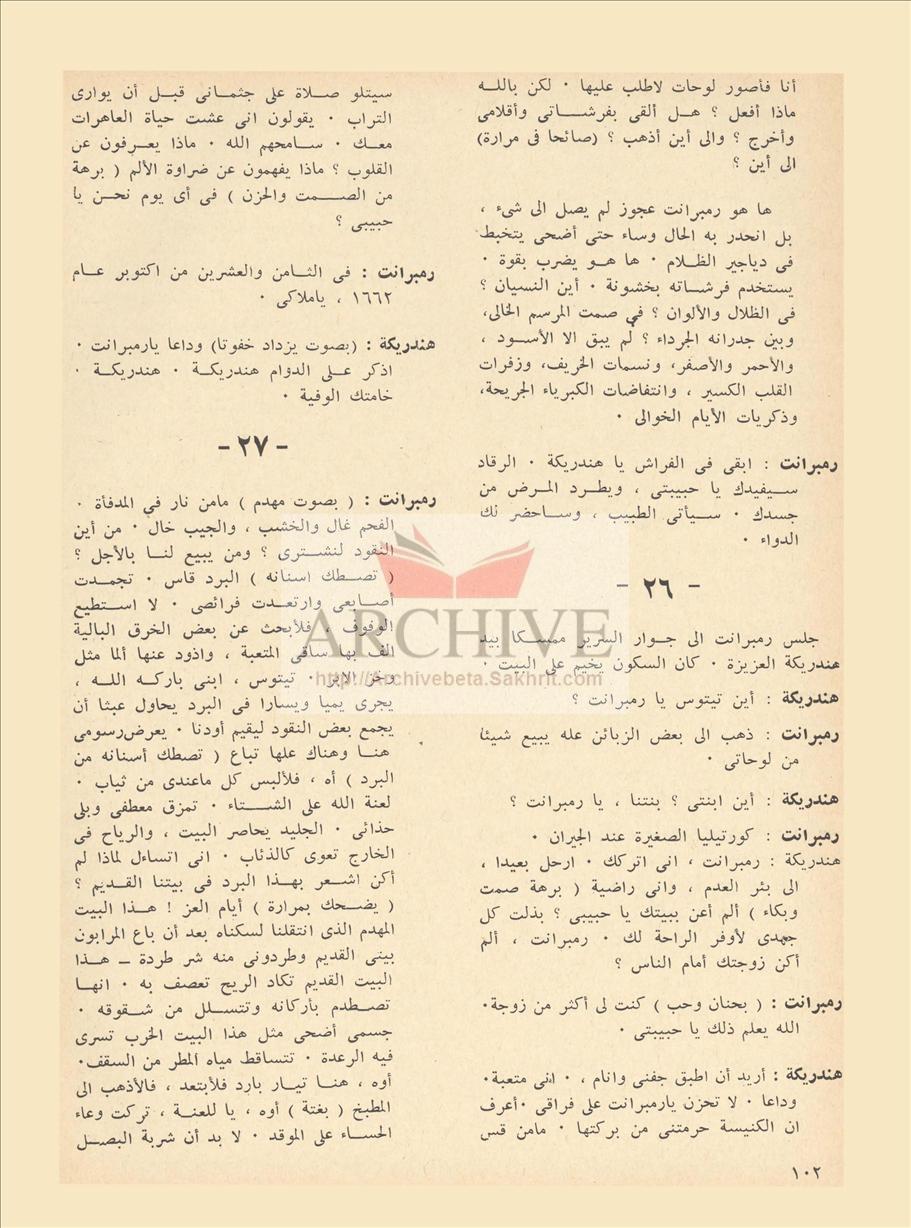 أنا فأصور لوحات لاطلب عليها · لكن بالله
ماذا أفعل ؟ هل ألقى بفرشاتى وأقلامى
وأخرج ؟ والى أين أذهب ؟ (صائحا فى مرارة)
الى أين ؟
ها هو رمبرانت عجوز لم يصل الى شىء ،
بل انحدر به الحال وساء حتى أضحى يتخبط
فى دياجير الظلام · ها هو يضرب بقوة ·
يستخدم فرشاته بخشونة · أين النسيان ؟
فى الظلال والألوان ؟ فى صمت المرسم الخالى،
وبين جدرانه الجرداء ؟ لم يبق الا الأسود ،
والأحمر والأصفر، ونسمات الخريف، وزفرات
القلب الكسير ، وانتفاضات الكبرياء الجريحة،
وذكريات الأيام الخوالى ·
رمبرانت : ابقى فى الفراش يا هندريكة · الرقاد
سيفيدك يا حبيبتى ، ويطرد المرض من
جسدك · سيأتى الطبيب ، وساحضر لك
الدواء ·
- ٢٦ -
جلس رمبرانت الى جوار السرير ممسكا بيد
هندريكة العزيزة · كان السكون يخيم على البيت ·
هندريكة : أين تيتوس يا رمبرانت ؟
رمبرانت : ذهب الى بعض الزبائن عله يبيع شيئا
من لوحاتى ·
هندريكة : أين ابنتى ؟ بنتنا ، يا رمبرانت ؟
رمبرانت : كورتيليا الصغيرة عند الجيران ·
هندريكة : رمبرانت ، انى اتركك · ارحل بعيدا ،
الى بئر العدم ، وانى راضية ( برهة صمت
وبكاء ) ألم أعن ببيتك يا حبيبى ؟ بذلت كل
جهدى لأوفر الراحة لك · رمبرانت ، ألم
أكن زوجتك أمام الناس ؟
رمبرانت : ( بحنان وحب ) كنت لى أكثر من زوجة·
الله يعلم ذلك يا حبيبتى ·
هندريكة : أريد أن اطبق جفنى وانام ، · انى متعبة·
وداعا · لا تحزن يارمبرانت على فراقى ·أعرف
ان الكنيسة حرمتنى من بركتها · مامن قس
سيتلو صلاة على جثمانى قبل أن يوارى
التراب · يقولون انى عشت حياة العاهرات
معك · سامحهم الله · ماذا يعرفون عن
القلوب ؟ ماذا يفهمون عن ضراوة الألم ( برهة
من الصمت والحزن ) فى أى يوم نحن يا
حبيبى ؟
رمبرانت : فى الثامن والعشرين من اكتوبر عام
١٦٦٢ ، ياملاكى ·
هندريكة : (بصوت يزداد خفوتا) وداعا يارمبرانت ·
اذكر على الدوام هندريكة · هندريكة ·
خامتك الوفية ·
- ٢٧ -
رمبرانت : ( بصوت مهدم ) مامن نار في المدفأة ·
الفحم غال والخشب ، والجيب خال · من أين
النقود لنشترى ؟ ومن يبيع لنا بالأجل ؟
( تصطك اسنانه ) البرد قاس · تجمدت
أصابعى وارتعدت فرائصى · لا استطيع
الوقوف ، فلأبحث عن بعض الخرق البالية
الف بها ساقى المتعبة ، واذود عنها ألما مثل
وخز الابر · تيتوس ، ابنى باركه الله ،
يجرى يميا ويسارا فى البرد يحاول عبثا أن
يجمع بعض النقود ليقيم أودنا · يعرض رسومى
هنا وهناك علها تباع ( تصطك أسنانه من
البرد ) أه ، فلألبس كل ماعندى من ثياب ·
لعنة الله على الشتاء · تمزق معطفى وبلى
حذائى · الجليد يحاصر البيت ، والرياح فى
الخارج تعوى كالذئاب · انى اتساءل لماذا لم
أكن اشعر بهذا البرد فى بيتنا القديم ؟
( يضحك بمرارة ) أيام العز ! هذا البيت
المهدم الذى انتقلنا لسكناه بعد أن باع المرابون
بيتى القديم وطردونى منه شر طردة ـ هذا
البيت القديم تكاد الريح تعصف به · انها
تصطدم بأركانه وتتسلل من شقوقه ·
جسمى أضحى مثل هذا البيت الخرب تسرى
فيه الرعدة · تتساقط مياه المطر من السقف·
أوه ، هنا تيار بارد فلأبتعد ، فالأذهب الى
المطبخ ( بغتة ) أوه ، يا للعنة ، تركت وعاء
الحساء على الموقد · لا بد أن شربة البصل
١٠٢
ARCHIVE
http://Archivebeta.Sakhrit.com